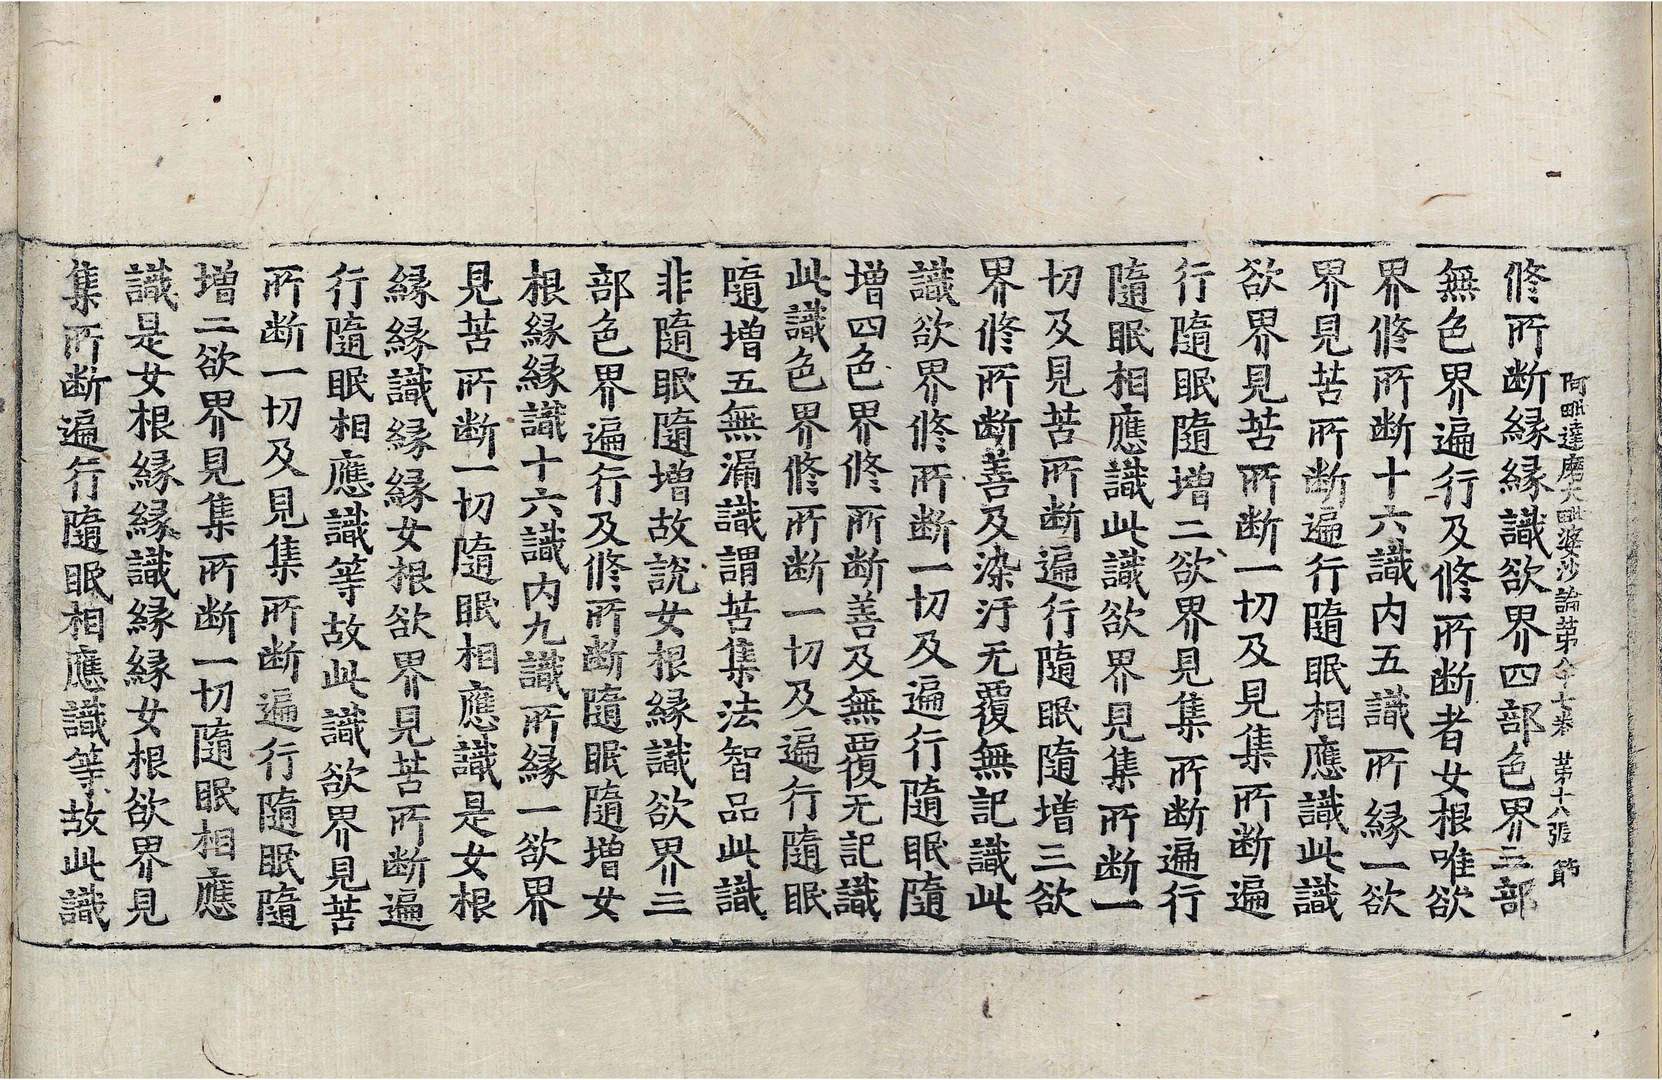 阿毗達磨大毗婆沙論第八十七卷 第十八張 節
修所断緣緣識欲界四部色界三部
無色界遍行及修所断者女根唯欲
界修所断十六識内五識所緣一欲
界見苦所断遍行隨眠相應識此識
欲界見苦所断一切及見集所断遍
行隨眠隨增二欲界見集所断遍行
隨眠相應識此識欲界見集所断一
切及見苦所断遍行隨眠隨增三欲
界修所断善及染汙无覆無記識此
識欲界修所断一切及遍行隨眠隨
增四色界修所断善及無覆无記識
此識色界修所断一切及遍行隨眠
隨增五無漏識謂苦集法智品此識
非隨眠隨增故說女根緣識欲界三
部色界遍行及修所断隨眠隨增女
根緣緣識十六識内九識所緣一欲界
見苦所断一切隨眠相應識是女根
緣緣識緣緣女根欲界見苦所断遍
行隨眠相應識等故此識欲界見苦
所断一切及見集所断遍行隨眠隨
增二欲界見集所断一切隨眠相應
識是女根緣緣識緣緣女根欲界見
集所断遍行隨眠相應識等故此識